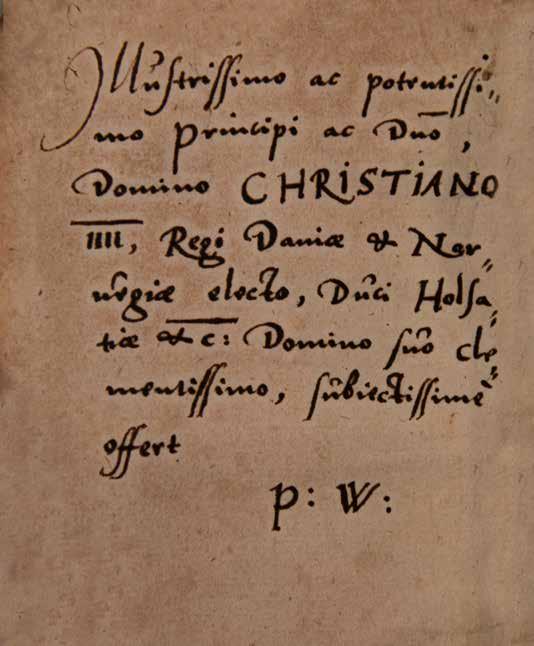 Illustrissimo ac potentissi⸗
mo Principi ac Dn̄o,
Domino CHRISTIANO
IIII, Regi Daniæ & Nor⸗
uegiæ electo, Duci Holsa⸗
tiæ &c: Domino suo cle⸗
mentissimo, subiectissimè
offert
P: W: